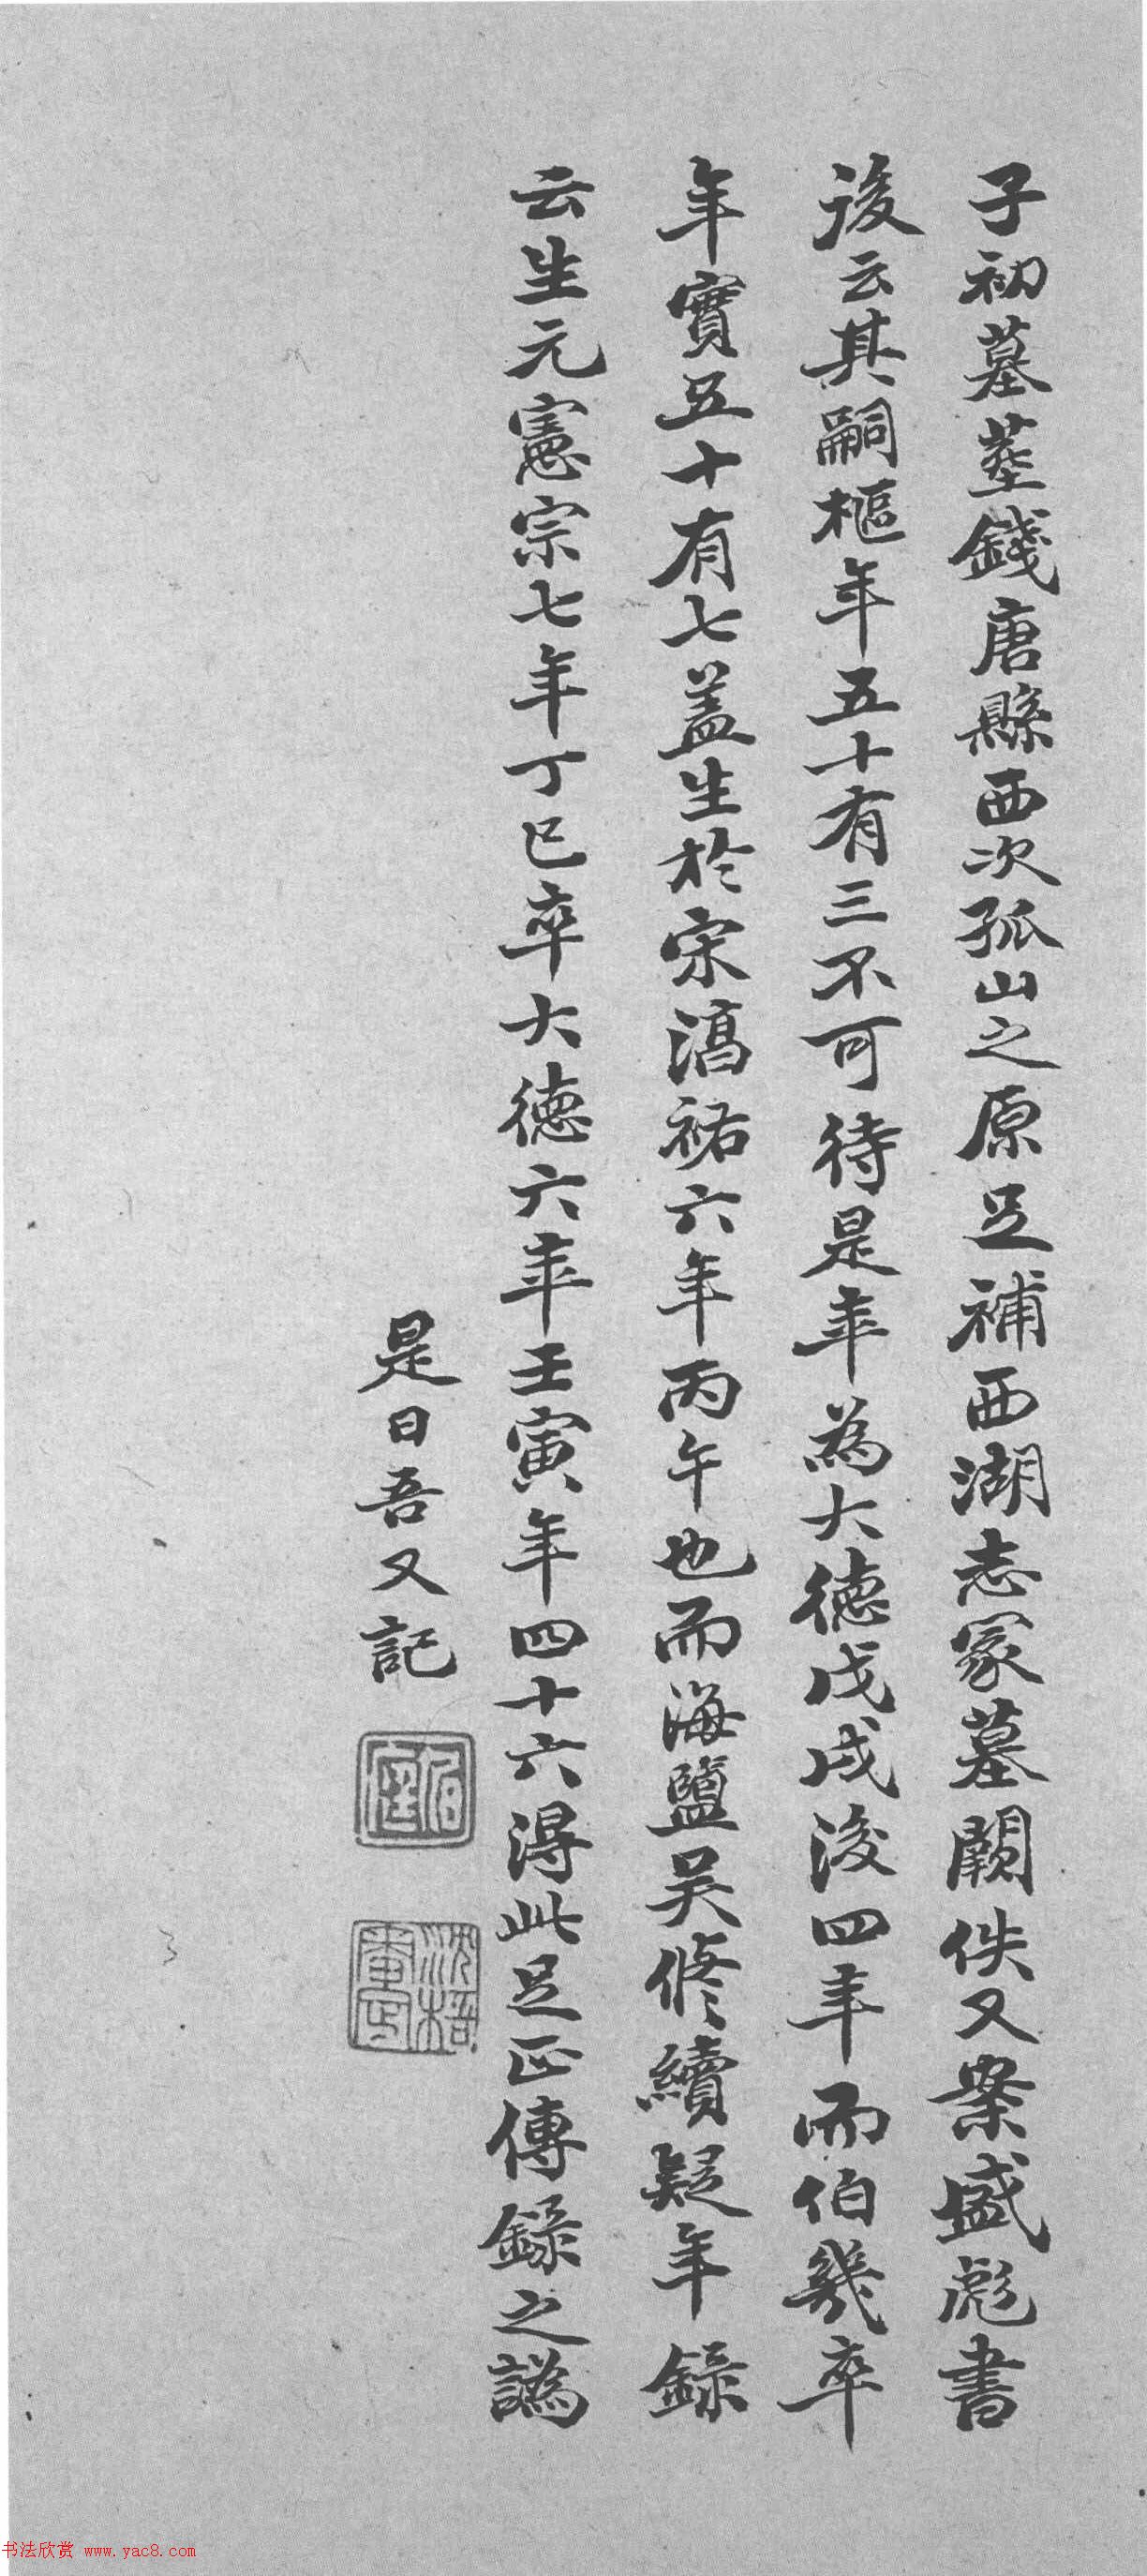 子初墓塟錢唐縣西次孤山之原足補西湖志冢墓闕佚又案盛彪書
後云其嗣樞年五十有三不可待是年為大德戊戌後四年而伯幾卒
年實五十有七盖生於宋湻祐六年丙午也而海鹽吳修續疑年錄
云生元憲宗七年丁巳卒大德六年壬寅年四十六得此足正傳錄之譌
是日吾又記
沈梧
书法欣赏 www.yac8.com